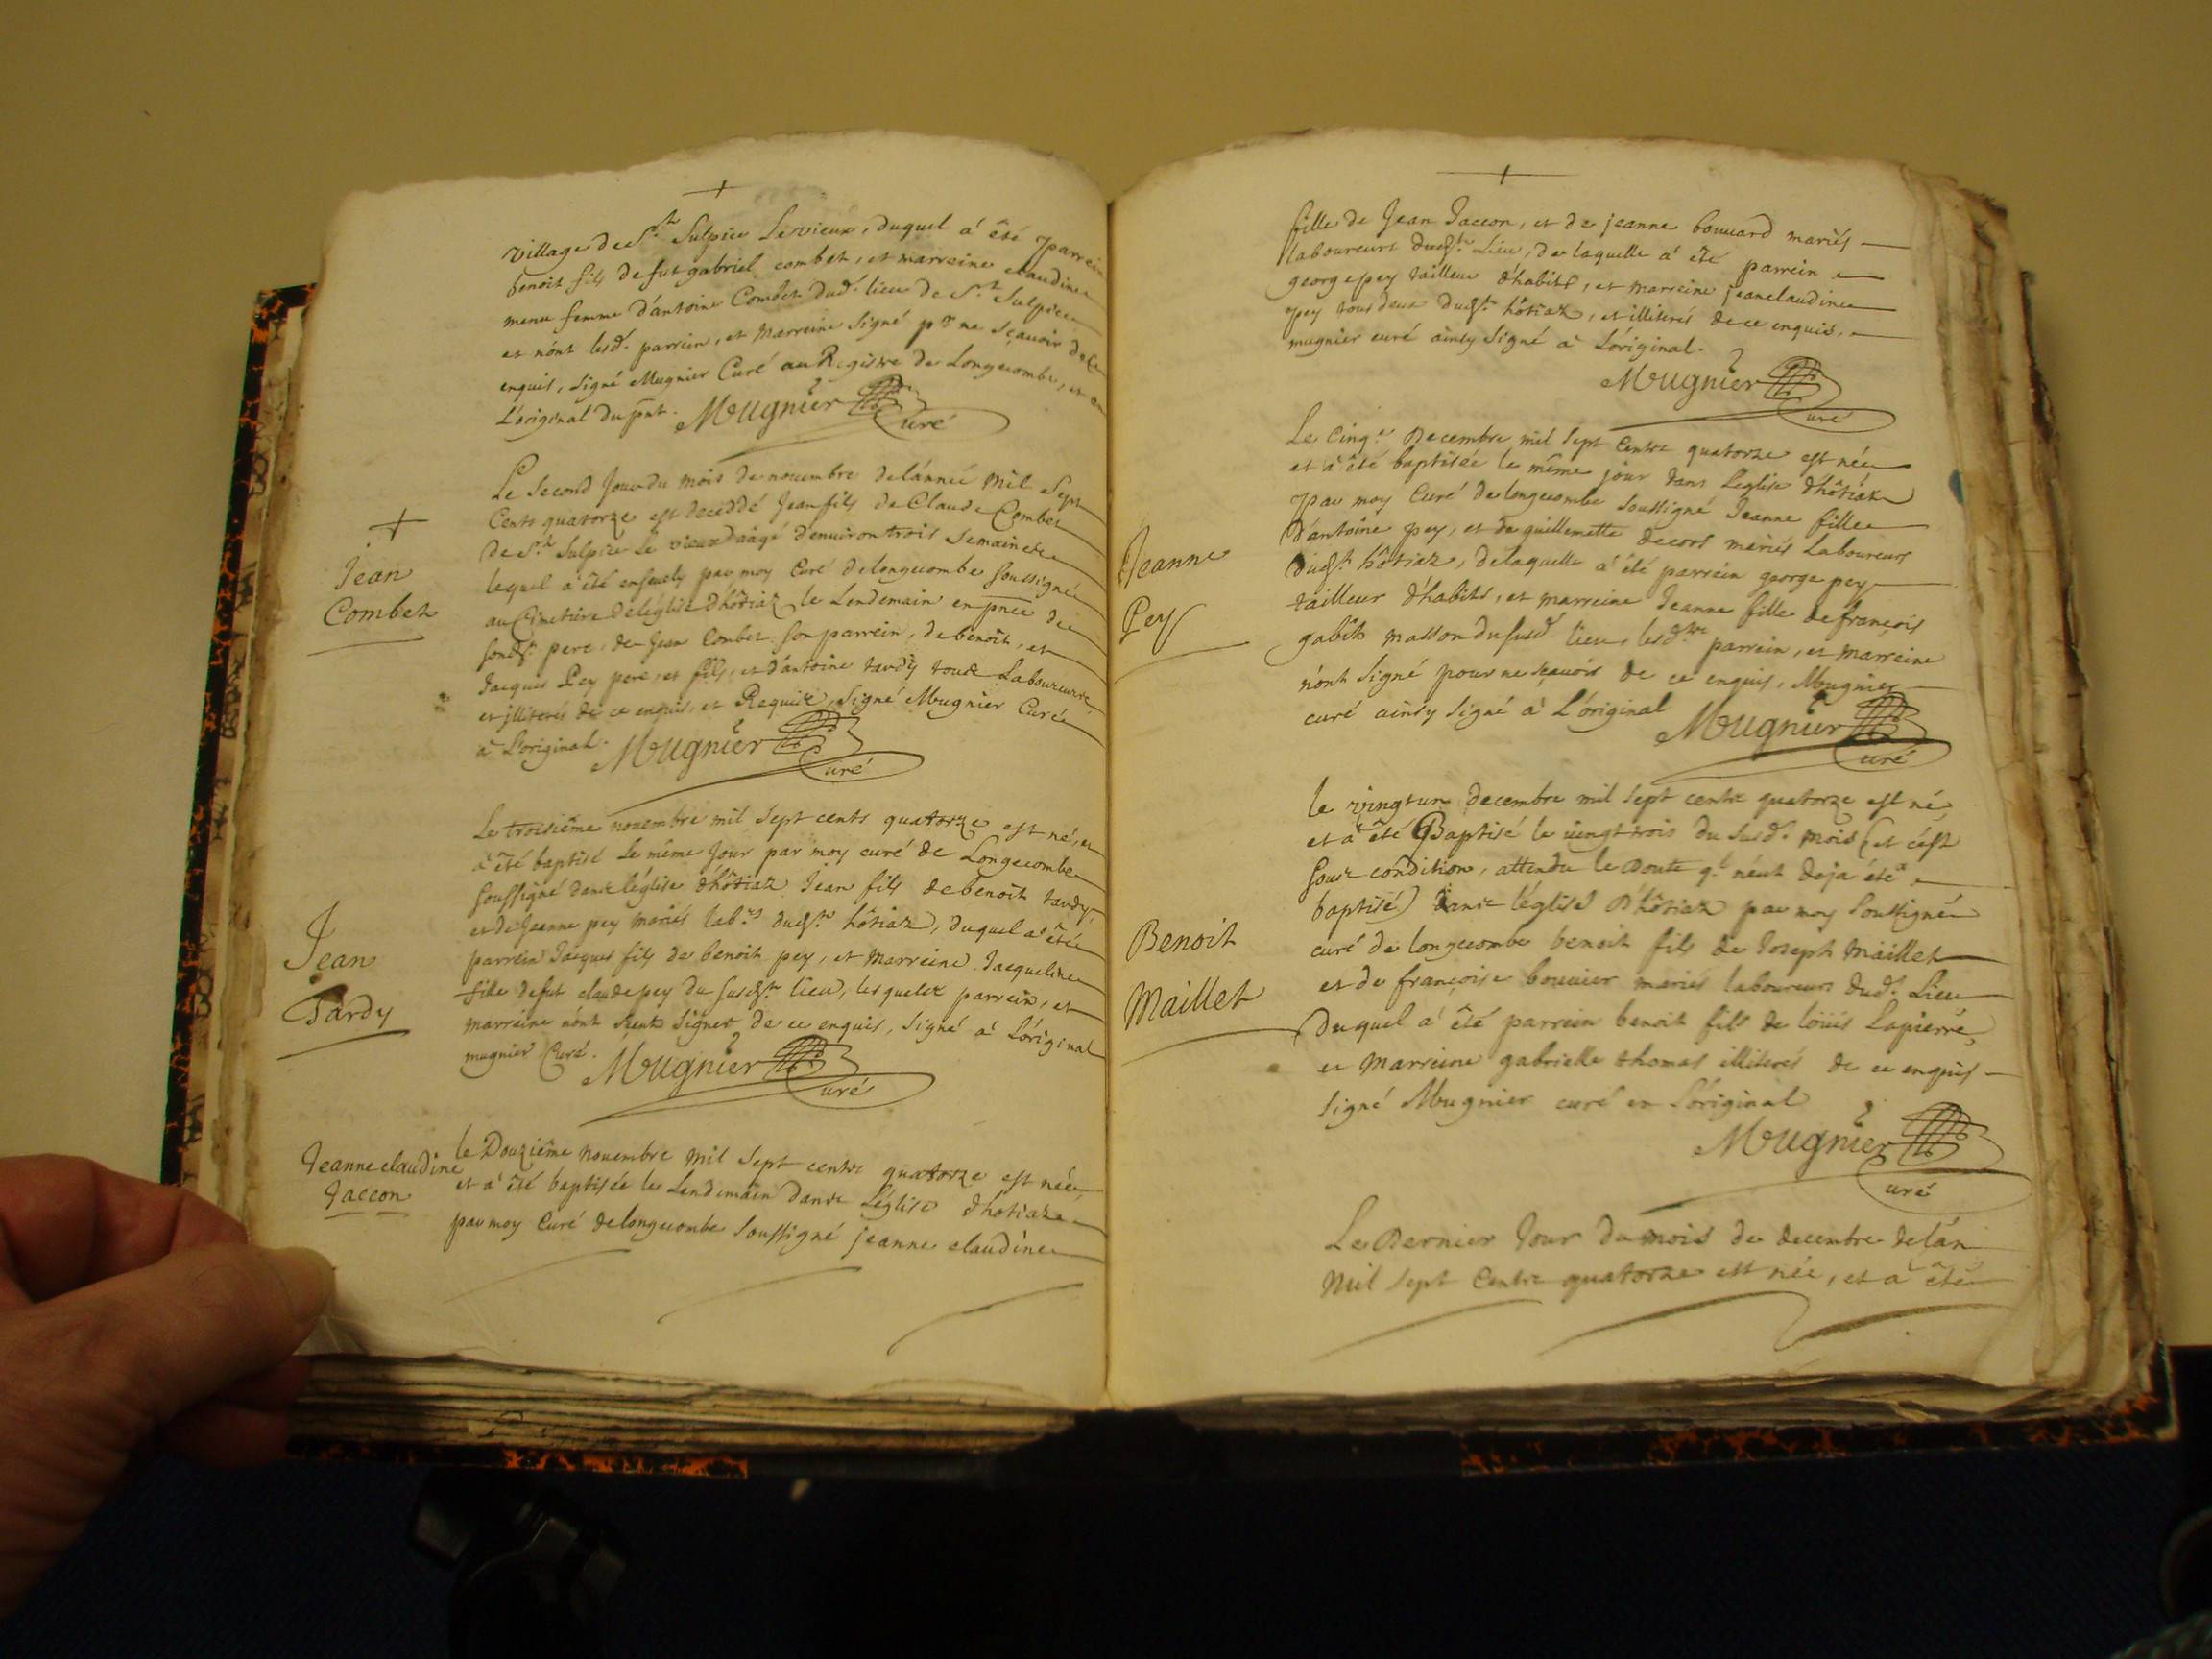 village de St Sulpice Levieux, duquel a êté parrein
benoit fils de fut gabriel combet, et marreine claudine
menu femme d'antoine Combet dud. lieu de St Sulpice
et n'ont lesd. parrein, et Marreine signé pr ne sçavoir de ce
enquis, signé Mugnier Curé au Registre de Longecombe, et en
L'original du pnt. Mugnier Curé
Jean
Combet
Le second Jour du mois de nouembre de l'année Mil Sept
Cents quatorze est deceddé Jean fils de Claude Combet
de St Sulpice Le vieux d'aâgé d'enuiron trois semaines
lequel a êté enseuely par moy Curé de longecombe soussigné
au Cimetiere de l'église d'hôtiaz le Lendemain en pnce de
sondt pere, de Jean Combet son parrein, de benoît, et
Jacques Pey pere, et fils, et d'antoine tardy tous Laboureurs
et illiterés de ce enquis, et Requis, signé Mugnier Curé
a L'original. Mugnier Curé
Jean
Tardy
Le troisiême nouembre mil sept cents quatorze est né, et
a êté baptisé le même Jour par moy curé de Longecombe
soussigné dans l'église d'hôtiaz Jean fils de benoît tardy,
et de Jeanne pey mariés labrs dudt hôtiaz, duquel a êté
parrein Jacques fils de benoit pey, et Marreine Jacqueline
fille de fut claude pey du susdt lieu, lesquels parrein, et
marreine n'ont sçeut signer de ce enquis, signé à L'original
mugnier Curé. Mugnier Curé
Jeanne claudine
Jaccon
le Douziême nouembre Mil Sept cents quatorze est née
et a êté baptisée le Lendemain dans L'église d'hotiaz
par moy Curé de longecombe soussigné jeanne claudine
fille de Jean Jaccon, et de jeanne bouuard mariés
laboureurs dudt Lieu, de laquelle a êté parrein
george pey tailleur d'habits, et marreine jeanclaudine
pey tous deux dudt hôtiaz, et illiterés de ce enquis,
mugnier curé ainsy signé a L'original.
Mugnier Curé
Jeanne
Pey
Le Cinqe Decembre mil Sept Cents quatorze est née
et a êté baptisée le même jour dans L'eglise d'hôtiaz
par moy Curé de longecombe soussigné Jeanne fille
d'antoine pey, et de guillemette decors mariés Laboureurs
dudt hôtiaz, de laquelle a êté parrein george pey
tailleur d'habits, et marreine Jeanne fille de françois
gabêt masson du susd. lieu, lesdts parrein, et marreine
n'ont signé pour ne sçauoir de ce enquis, Mugnier
curé ainsy signé a L'original Mugnier Curé
Benoit
Maillet
le vingt un decembre mil sept cents quatorze est né,
et a êté Baptisé le vingt trois du susd. mois (et c'est
sous condition, attendu le doute ql n'eut deja été
baptisé) dans l'église D'hôtiaz par moy soussigné
curé de longecombe benoit fils de Joseph Maillet
et de françoise bouuier mariés laboureurs dud. Lieu
duquel a êté parrein benoit fils de loüis Lapierre,
et Marreine gabrielle thomas illiterés de ce enquis
signé Mugnier curé en L'original
Mugnier Curé
Le Dernier Jour du mois de decembre de l'an
Mil sept Cents quatorze est née, et a êté